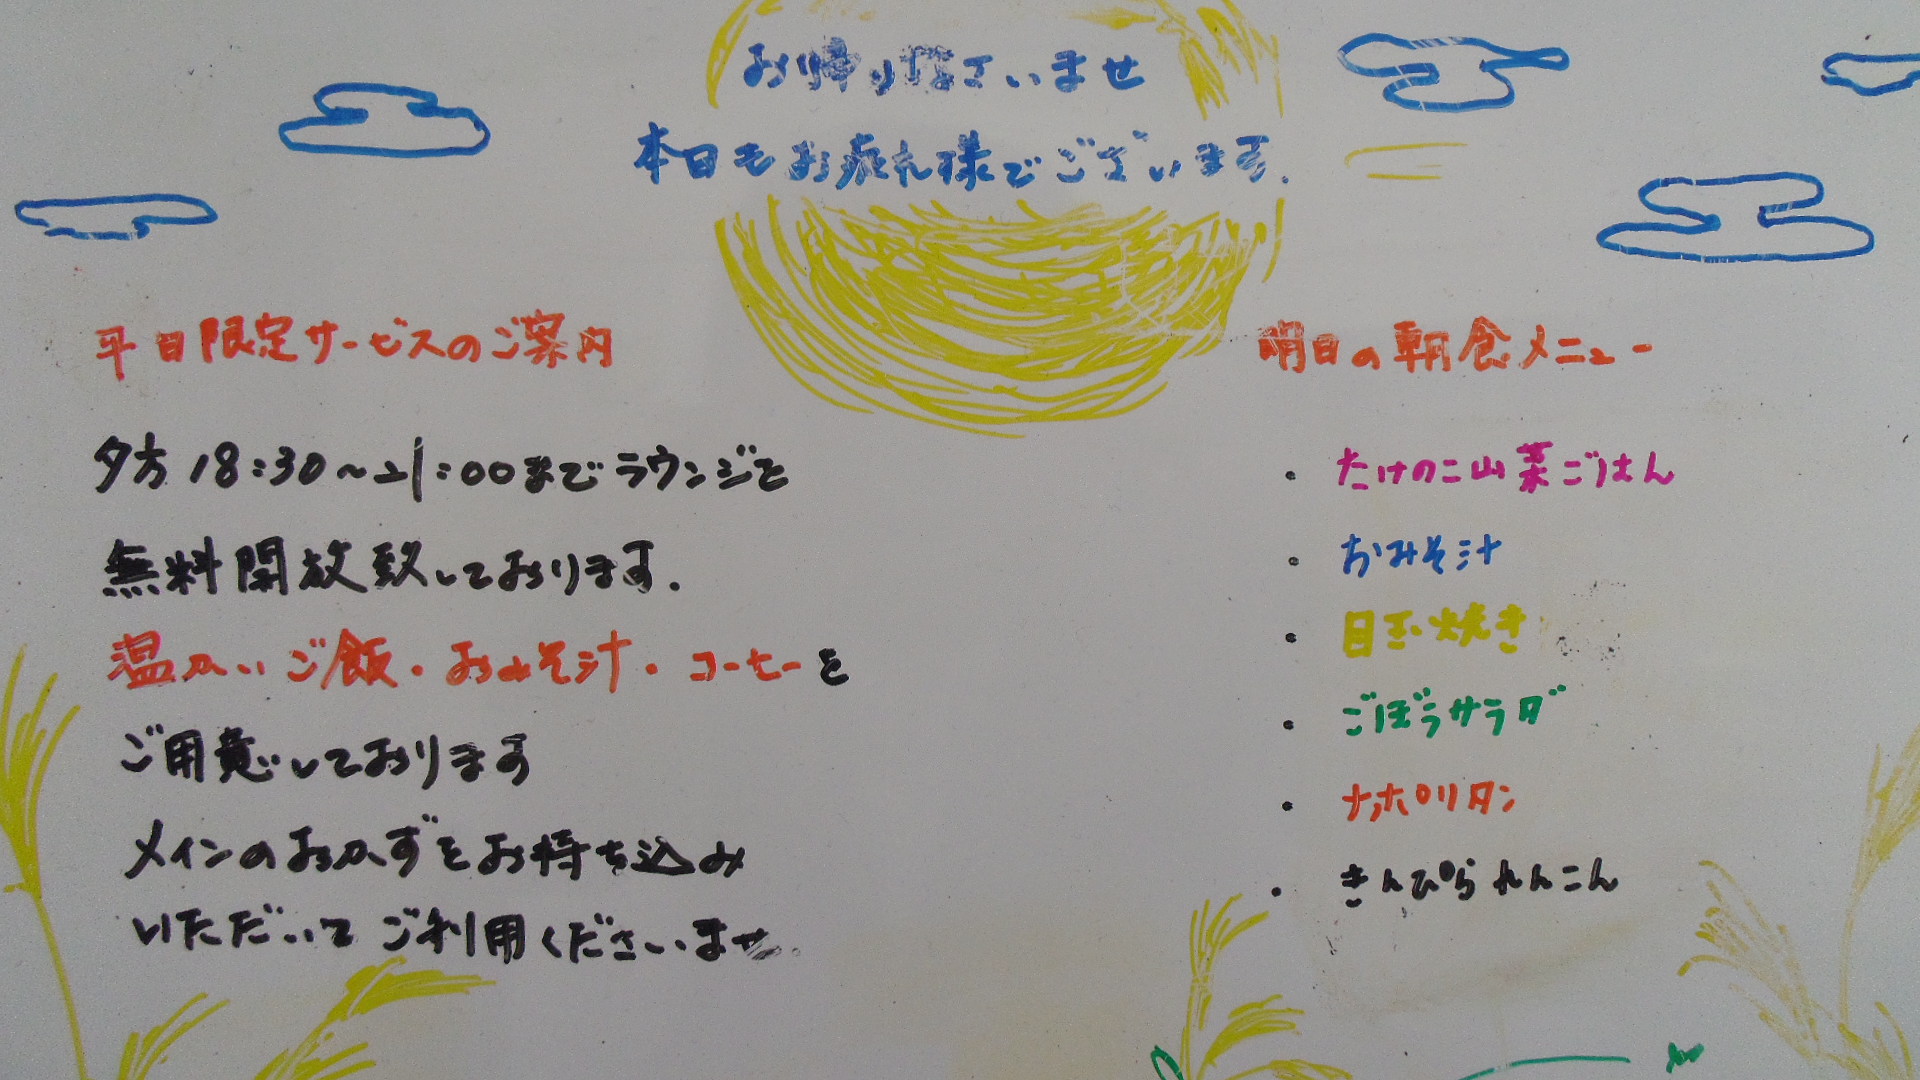 お帰りなさいませ
本日もお疲れ様でございます.
平日限定サービスのご案内
夕方 18:30〜21:00までラウンジを
無料開放致しております.
温かいご飯・おみそ汁・コーヒーを
ご用意しております
メインのおかずをお持ち込み
いただいてご利用くださいませ.
明日の朝食メニュー
・たけのこ山菜ごはん
・おみそ汁
・目玉焼き
・ごぼうサラダ
・ナポリタン
・きんぴられんこん